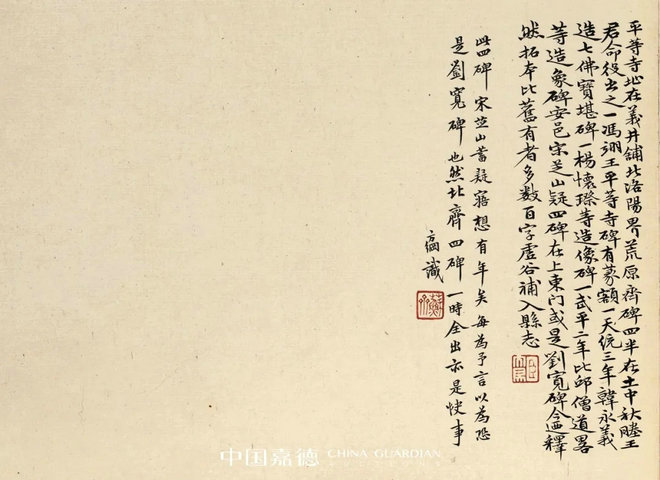 平等寺地在義井舖北洛陽界荒原齊碑四半在土中秋塍王
君命役出之一馮翊王平等寺碑有篆額一天統三年韓永義
造七佛寶堪碑一楊懷璨等造像碑一武平二年比邱僧道畧
等造象碑安邑宋芝山疑四碑在上東門或是劉寬碑今逈釋
然拓本比舊有者多數百字虛谷補入縣志
此四碑宋芝山蓄疑寤想有年矣每為予言以為恐
是劉寬碑也然北齊四碑一時全出亦是快事
識
中国嘉德 CHINA GUARDIAN